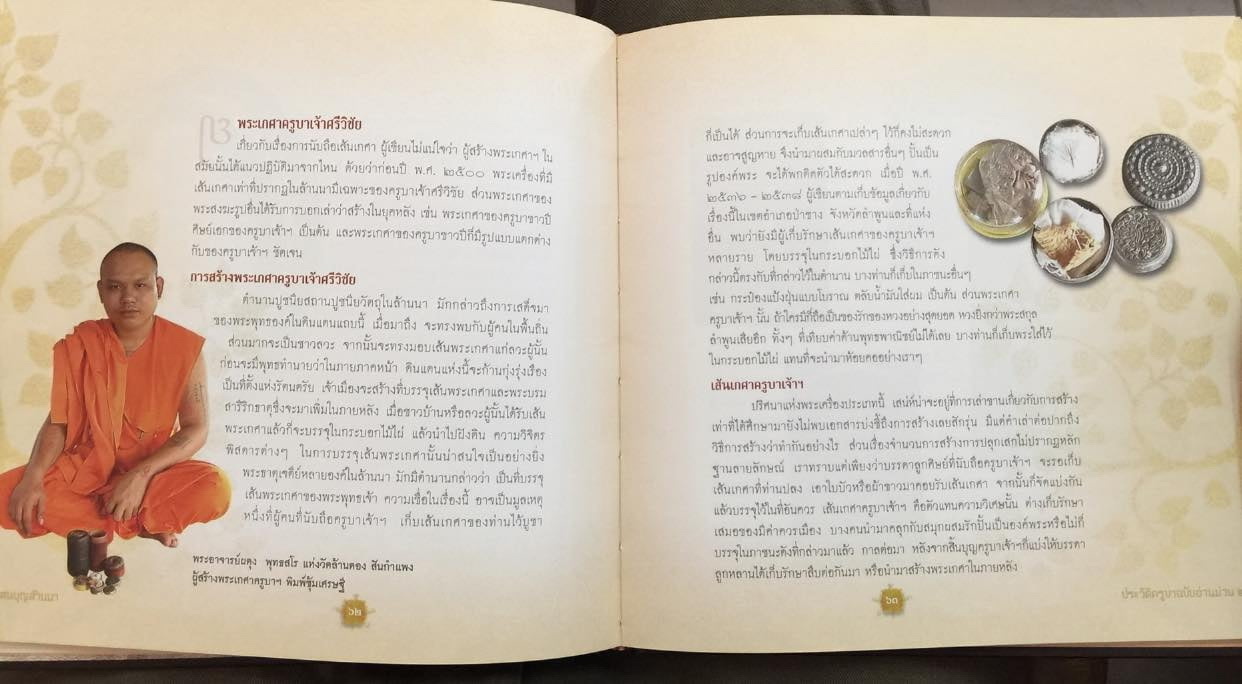 ๓
พระเกศาครูบาเจ้าศรีวิชัย
เกี่ยวกับเรื่องการนับถือเส้นเกศา ผู้เขียนไม่แน่ใจว่า ผู้สร้างพระเกศาฯ ใน
สมัยนั้นได้แนวปฏิบัติมาจากไหน ด้วยว่าก่อนปี พ.ศ. ๒๕๐๐ พระเครื่องที่มี
เส้นเกศาเท่าที่ปรากฏในล้านนามีเฉพาะของครูบาเจ้าศรีวิชัย ส่วนพระเกศาของ
พระสงฆ์รูปอื่นได้รับการบอกเล่าว่าสร้างในยุคหลัง เช่น พระเกศาของครูบาขาวปี
ศิษย์เอกของครูบาเจ้าฯ เป็นต้น และพระเกศาของครูบาขาวปีก็มีรูปแบบแตกต่าง
กับของครูบาเจ้าฯ ชัดเจน
การสร้างพระเกศาครูบาเจ้าศรีวิชัย
ตำนานปูชนียสถานปูชนียวัตถุในล้านนา มักกล่าวถึงการเสด็จมา
ของพระพุทธองค์ในดินแดนแถบนี้ เมื่อมาถึง จะทรงพบกับผู้คนในพื้นถิ่น
ส่วนมากจะเป็นชาวลวะ จากนั้นจะทรงมอบเส้นพระเกศาแก่ลวะผู้นั้น
ก่อนจะมีพุทธทำนายว่าในภายภาคหน้า ดินแดนแห่งนี้จะก้านกุ่งรุ่งเรือง
เป็นที่ตั้งแห่งรัตนตรัย เจ้าเมืองจะสร้างที่บรรจุเส้นพระเกศาและพระบรม
สารีริกธาตุซึ่งจะมาเพิ่มในภายหลัง เมื่อชาวบ้านหรือลวะผู้นั้นได้รับเส้น
พระเกศาแล้วก็จะบรรจุในกระบอกไม้ไผ่ แล้วนำไปฝังดิน ความวิจิตร
พิสดารต่างๆ ในการบรรจุเส้นพระเกศานั้นน่าสนใจเป็นอย่างยิ่ง
พระธาตุเจดีย์หลายองค์ในล้านนา มักมีตำนานกล่าวว่า เป็นที่บรรจุ
เส้นพระเกศาของพระพุทธเจ้า ความเชื่อในเรื่องนี้ อาจเป็นมูลเหตุ
หนึ่งที่ผู้คนที่นับถือครูบาเจ้าฯ เก็บเส้นเกศาของท่านไว้บูชา
พระอาจารย์ผดุง พุทธสโร แห่งวัดล้านตอง สันกำแพง
ผู้สร้างพระเกศาครูบาฯ พิมพ์ซุ้มเศรษฐี
สนบุญล้านนา
๖๒
ก็เป็นได้ ส่วนการจะเก็บเส้นเกศาเปล่าๆ ไว้ก็คงไม่สะดวก
และอาจสูญหาย จึงนำมาผสมกับมวลสารอื่นๆ ปั้นเป็น
รูปองค์พระ จะได้พกติดตัวได้สะดวก เมื่อปี พ.ศ.
๒๕๓๖ - ๒๕๓๘ ผู้เขียนตามเก็บข้อมูลเกี่ยวกับ
เรื่องนี้ในเขตอำเภอป่าซาง จังหวัดลำพูนและที่แห่ง
อื่น พบว่ายังมีผู้เก็บรักษาเส้นเกศาของครูบาเจ้าฯ
หลายราย โดยบรรจุในกระบอกไม้ไผ่ ซึ่งวิธีการดัง
กล่าวนี้ตรงกับที่กล่าวไว้ในตำนาน บางท่านก็เก็บในภาชนะอื่นๆ
เช่น กระป๋องแป้งฝุ่นแบบโบราณ ตลับน้ำมันใส่ผม เป็นต้น ส่วนพระเกศา
ครูบาเจ้าฯ นั้น ถ้าใครมีก็ถือเป็นของรักของหวงอย่างสุดยอด หวงยิ่งกว่าพระสกุล
ลำพูนเสียอีก ทั้งๆ ที่เทียบค่าด้านพุทธพาณิชย์ไม่ได้เลย บางท่านก็เก็บพระใส่ไว้
ในกระบอกไม้ไผ่ แทนที่จะนำมาห้อยคออย่างเราๆ
เส้นเกศาครูบาเจ้าฯ
ปริศนาแห่งพระเครื่องประเภทนี้ เสน่ห์น่าจะอยู่ที่การเล่าขานเกี่ยวกับการสร้าง
เท่าที่ได้ศึกษามายังไม่พบเอกสารบ่งชี้ถึงการสร้างเลยสักรุ่น มีแต่คำเล่าต่อปากถึง
วิธีการสร้างว่าทำกันอย่างไร ส่วนเรื่องจำนวนการสร้างการปลุกเสกไม่ปรากฏหลัก
ฐานลายลักษณ์ เราทราบแต่เพียงว่าบรรดาลูกศิษย์ที่นับถือครูบาเจ้าฯ จะรอเก็บ
เส้นเกศาที่ท่านปลง เอาใบบัวหรือผ้าขาวมาคอยรับเส้นเกศา จากนั้นก็จัดแบ่งกัน
แล้วบรรจุไว้ในที่อันควร เส้นเกศาครูบาเจ้าฯ คือตัวแทนความวิเศษนั้น ต่างเก็บรักษา
เสมอของมีค่าควรเมือง บางคนนำมาคลุกกับสมุกผสมรักปั้นเป็นองค์พระหรือไม่ก็
บรรจุในภาชนะดังที่กล่าวมาแล้ว กาลต่อมา หลังจากสิ้นบุญครูบาเจ้าฯก็แบ่งให้บรรดา
ลูกหลานได้เก็บรักษาสืบต่อกันมา หรือนำมาสร้างพระเกศาในภายหลัง
๖๓
ประวัติครูบาฉบับอ่านม่วน